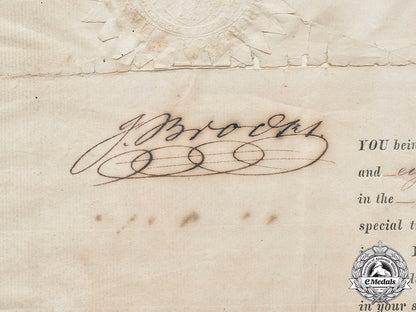 J. Brodie
YOU bein
and
in the
special t
in your s
eMedals